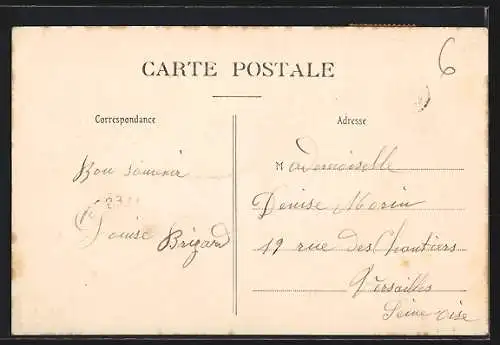 6
CARTE POSTALE
Correspondance
Bon souvenir
Louise Brizard
Adresse
Mademoiselle
Denise Morin
49 rue des Chantiers
Versailles
Seine Oise